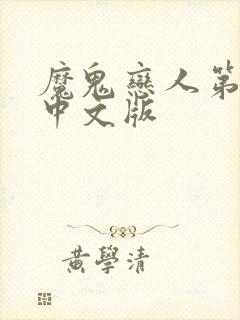 魔鬼戀人第
中文版
黃學清